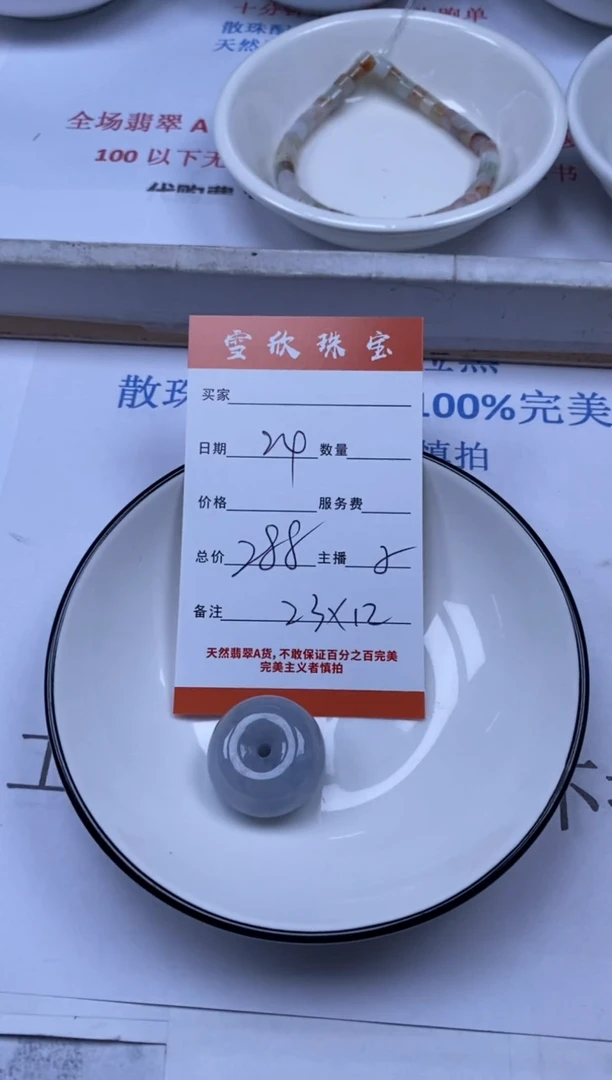 散珠配
天然
全场翡翠 A
100 以下无
代购费
雪欣珠宝
散珠
100%完美
慎拍
买家
日期 24 数量
价格 服务费
总价 288 主播
备注 23×12
天然翡翠A货，不敢保证百分之百完美
完美主义者慎拍